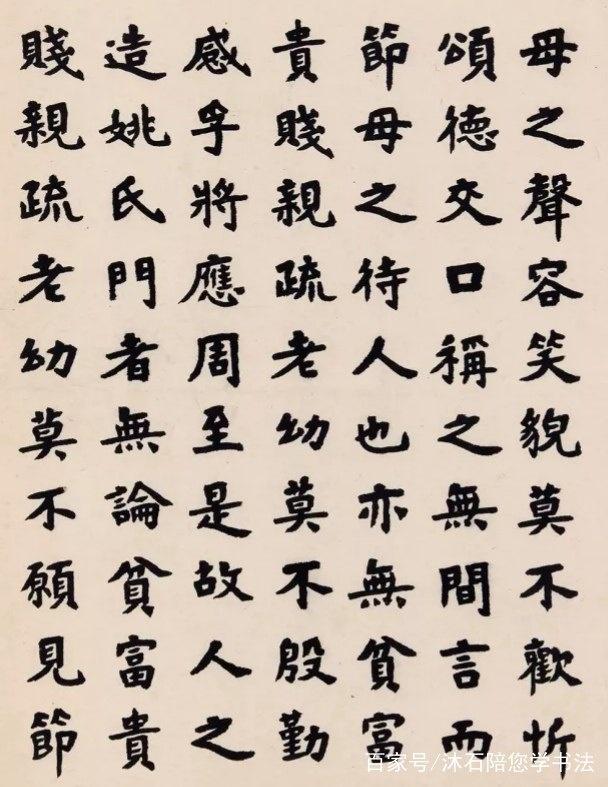 母之聲容笑貌莫不歡忻
頌德交口稱之無間言而
節母之待人也亦無貧富
貴賤親疏老幼莫不殷勤
感孚將應周至是故人之
造姚氏門者無論貧富貴
賤親疏老幼莫不願見節
百家号/沐石陪您学书法